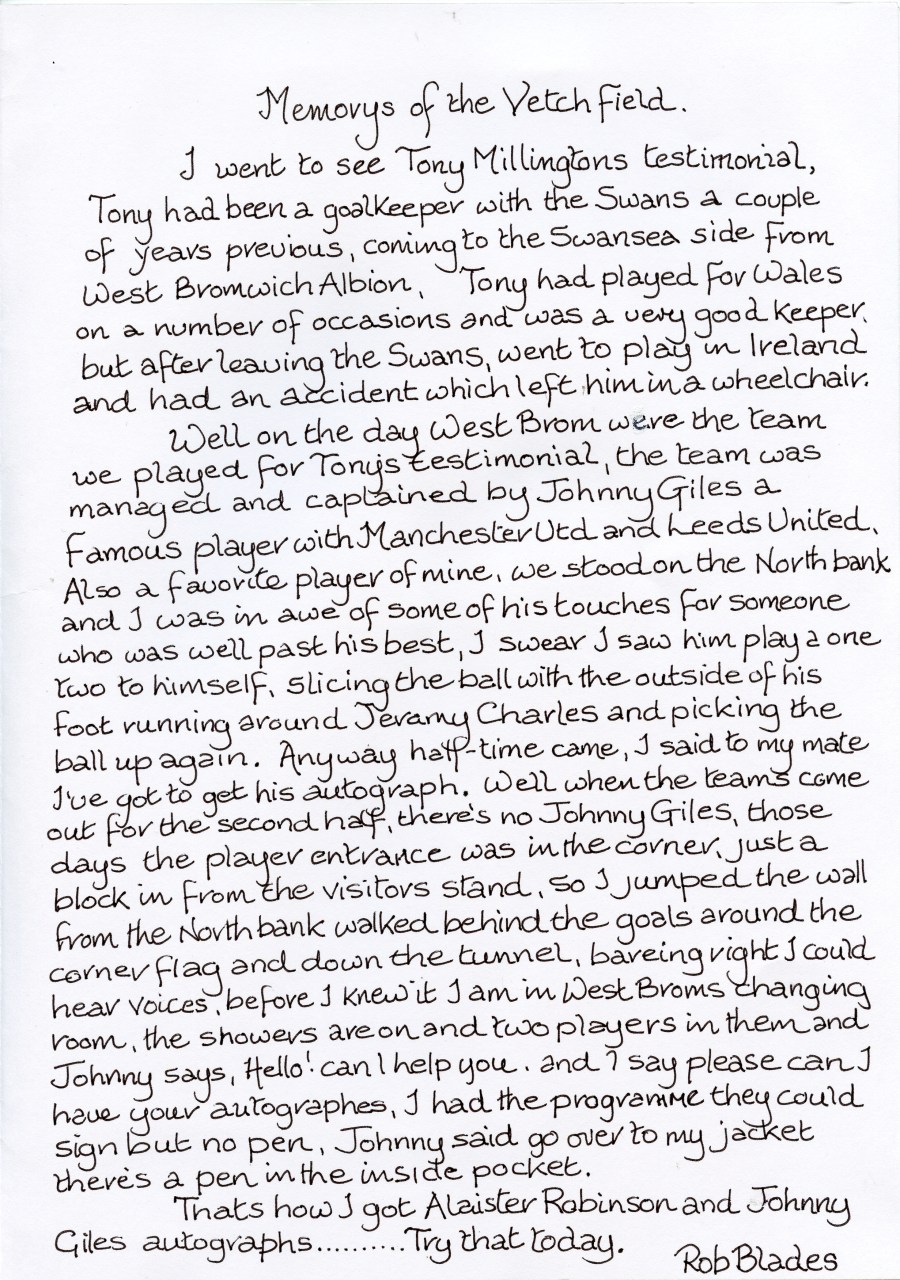 Memorys of the Vetch field.
I went to see Tony Millingtons testimonial,
Tony had been a goalkeeper with the Swans a couple
of years previous, coming to the Swansea side from
West Bromwich Albion, Tony had played for Wales
on a number of occasions and was a very good keeper,
but after leaving the Swans, went to play in Ireland
and had an accident which left him in a wheelchair.
Well on the day West Brom were the team
we played for Tony's testimonial, the team was
managed and captained by Johnny Giles a
famous player with Manchester Utd and Leeds United,
Also a favorite player of mine, we stood on the North bank
and I was in awe of some of his touches for someone
who was well past his best, I swear I saw him play a one
two to himself, slicing the ball with the outside of his
foot running around Jeramy Charles and picking the
ball up again. Anyway half-time came, I said to my mate
I've got to get his autograph. Well when the teams come
out for the second half, there's no Johnny Giles, those
days the player entrance was in the corner, just a
block in from the visitors stand, so I jumped the wall
from the North bank walked behind the goals around the
corner flag and down the tunnel, bareing right I could
hear voices, before I knew it I am in West Broms changing
room, the showers are on and two players in them and
Johnny says, Hello! can I help you. and I say please can I
have your autographes, I had the programme they could
sign but no pen, Johnny said go over to my jacket
there's a pen in the inside pocket.
Thats how I got Alaister Robinson and Johnny
Giles autographs..........Try that today.
Rob Blades